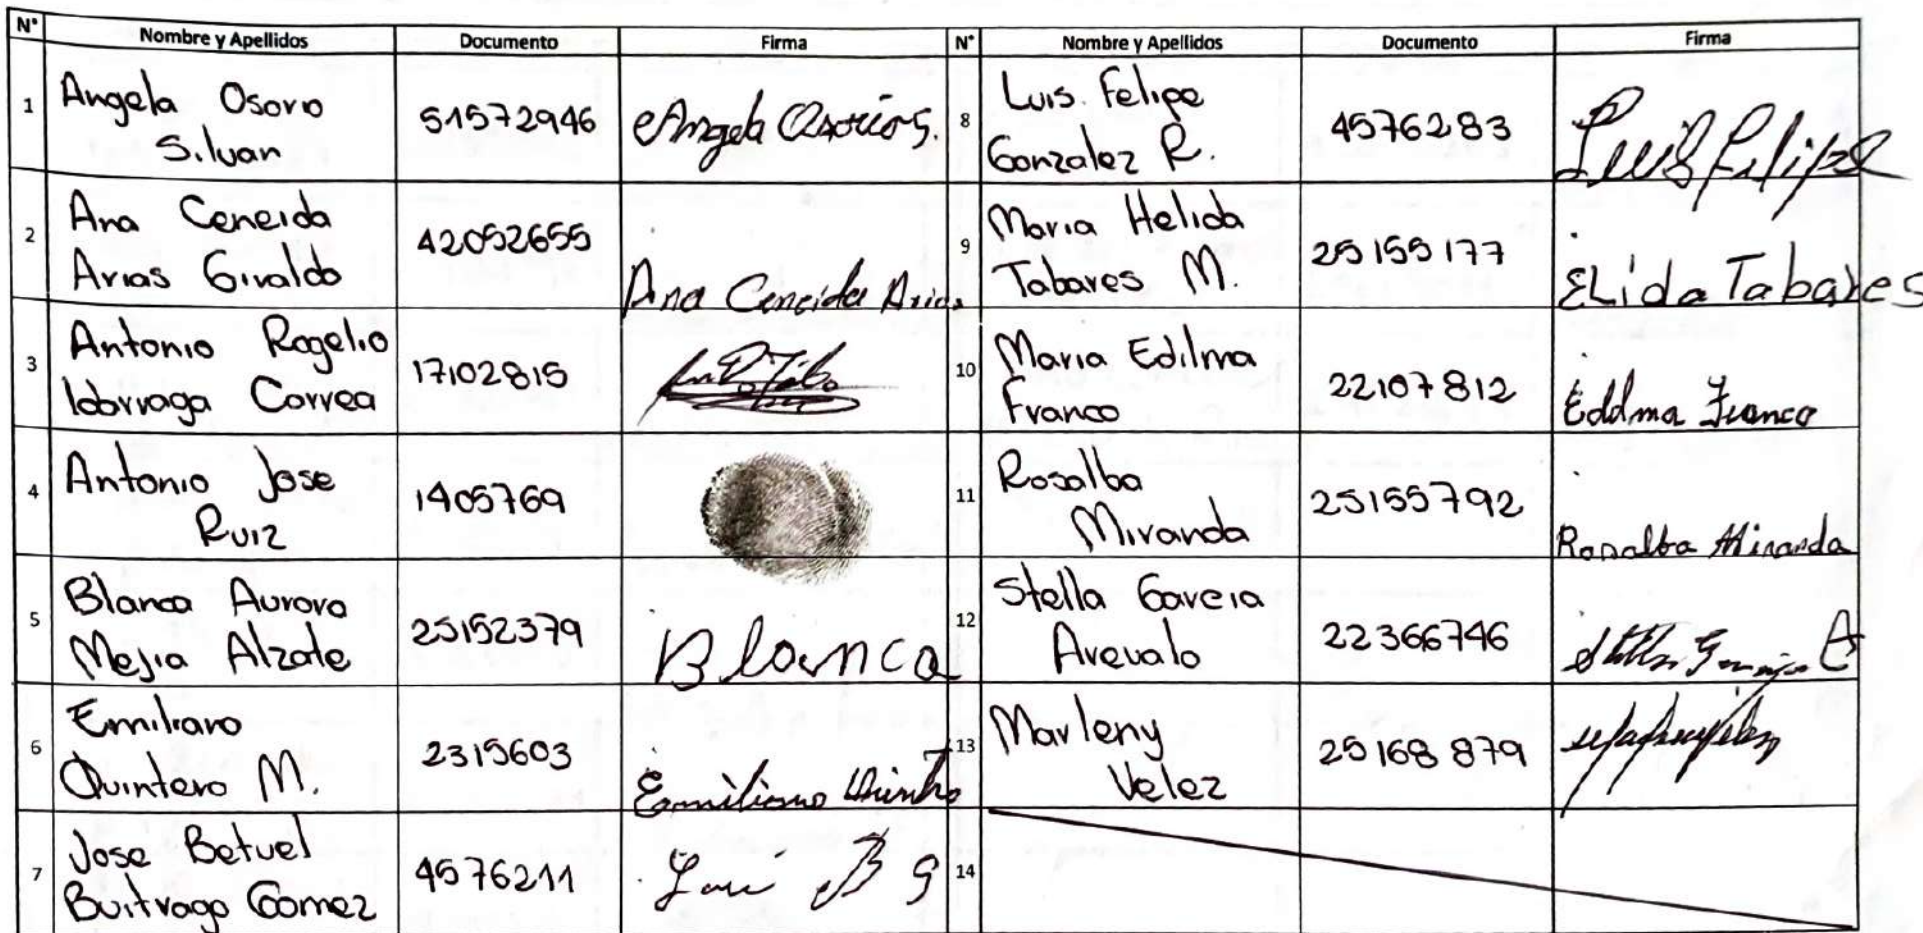 N° Nombre y Apellidos Documento Firma N° Nombre y Apellidos Documento Firma
1 Angela Osorio Silvan 51572946 Angela Osorio S.
2 Ana Ceneida Arias Giraldo 42052655 Ana Ceneida Arias
3 Antonio Rogelio Idarraga Correa 17102815
4 Antonio Jose Ruiz 1405769
5 Blanca Aurora Mejia Alzate 25152379 Blanca
6 Emiliano Quintero M. 2315603 Emiliano Quintro
7 Jose Betuel Buitrago Gomez 4576211 José B G
8 Luis Felipe Gonzalez R. 4576283 Luis Felipe
9 Maria Helida Tabares M. 25155177 ELida Tabares
10 Maria Edilma Franco 22107812 Edilma Franco
11 Rosalba Miranda 25155792 Rosalba Miranda
12 Stella Garcia Arevalo 22366746 Stella Garcia A
13 Marleny Velez 25168879
14